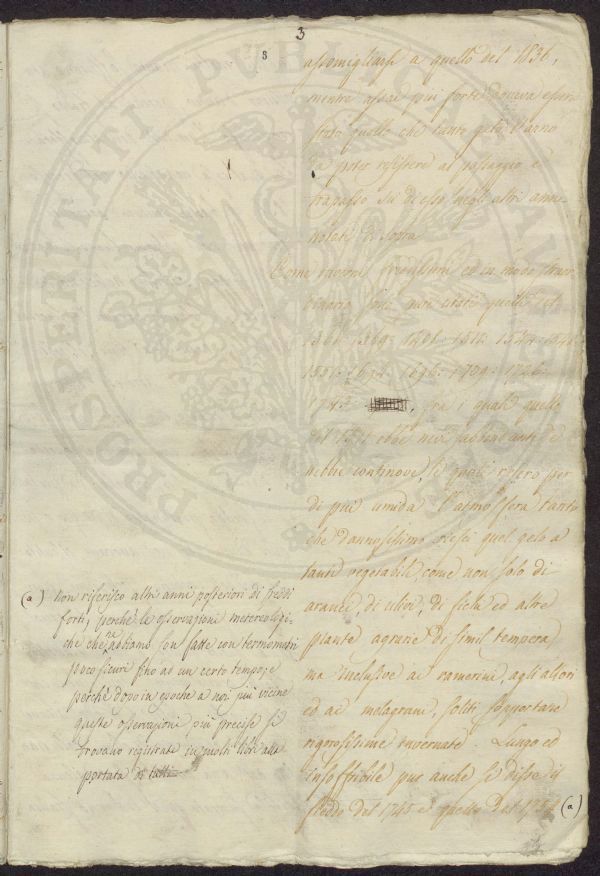 3
8
assomigliarsi a quello del 1836,
mentre assai più forte doveva essere
stato quello che tanto gelò l'Arno
da poter resistere al passaggio e
trapasso su di esso negli altri anni
notati di sopra
Come inverni freddissimi ed in modo straor
dinario furon notati quelli del
1364. 1369. 1408. 1511. 1549.
1551. 1694. 1696. 1709. 1726.
1747. , fra i quali quello
del 1511 ebbe nevi abbondanti e
nebbie continove, le quali resero per
di più umida l'atmosfera tanto
che dannosissimo riescì quel gelo a
tanti vegetabili, come non solo di
aranci, di ulivi, di fichi ed altre
piante agrarie di simil tempera,
ma inclusive ai ramerini, agli allori
ed ai melagrani, soliti sopportare
rigorosissime invernate. Lungo ed
insoffribile pur anche si disse il
freddo del 1745 e quello del (a)
(a) Non riferisco altri anni posteriori di freddi
forti, perchè le osservazioni metereologi-
che che ne abbiamo son fatte con termometri
poco sicuri fino ad un certo tempo; e
perchè dopo in epoche a noi più vicine
queste osservazioni più precise si
trovano registrate in molti libri alla
portata di tutti
PROSPERITATI PUBLICAE AUGENDAE